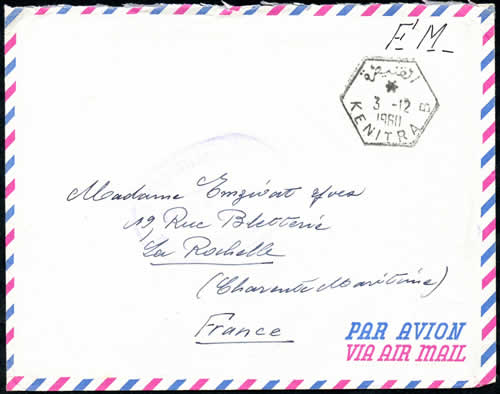 F.M.
القنيطرة
*
3 -12
1960
KENITRA B
Madame Emzivat Yves
19, Rue Bletterie
La Rochelle
(Charente Maritime)
France
PAR AVION
VIA AIR MAIL